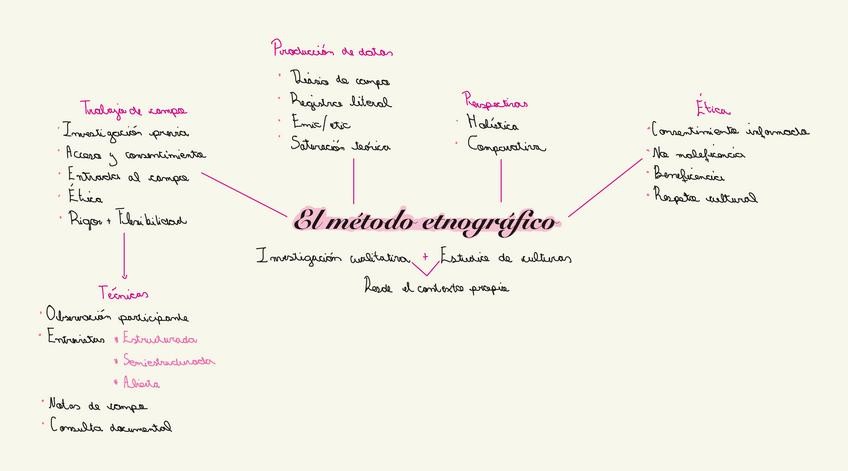 Producción de datos
Diario de campo
Registro literal
Emic/etic
Saturación teórica
Trabajo de campo
Investigación previa
Acceso y consentimiento
Entrada al campo
Ética
Rigor + Flexibilidad
Perspectivas
Holística
Comparativa
Ética
Consentimiento informado
No maleficencia
Beneficencia
Respeto cultural
El método etnográfico
Investigación cualitativa + Estudio de culturas
Desde el contexto propio
Técnicas
Observación participante
Entrevistas * Estructurada
* Semiestructurada
* Abierta
Notas de campo
Consulta documental